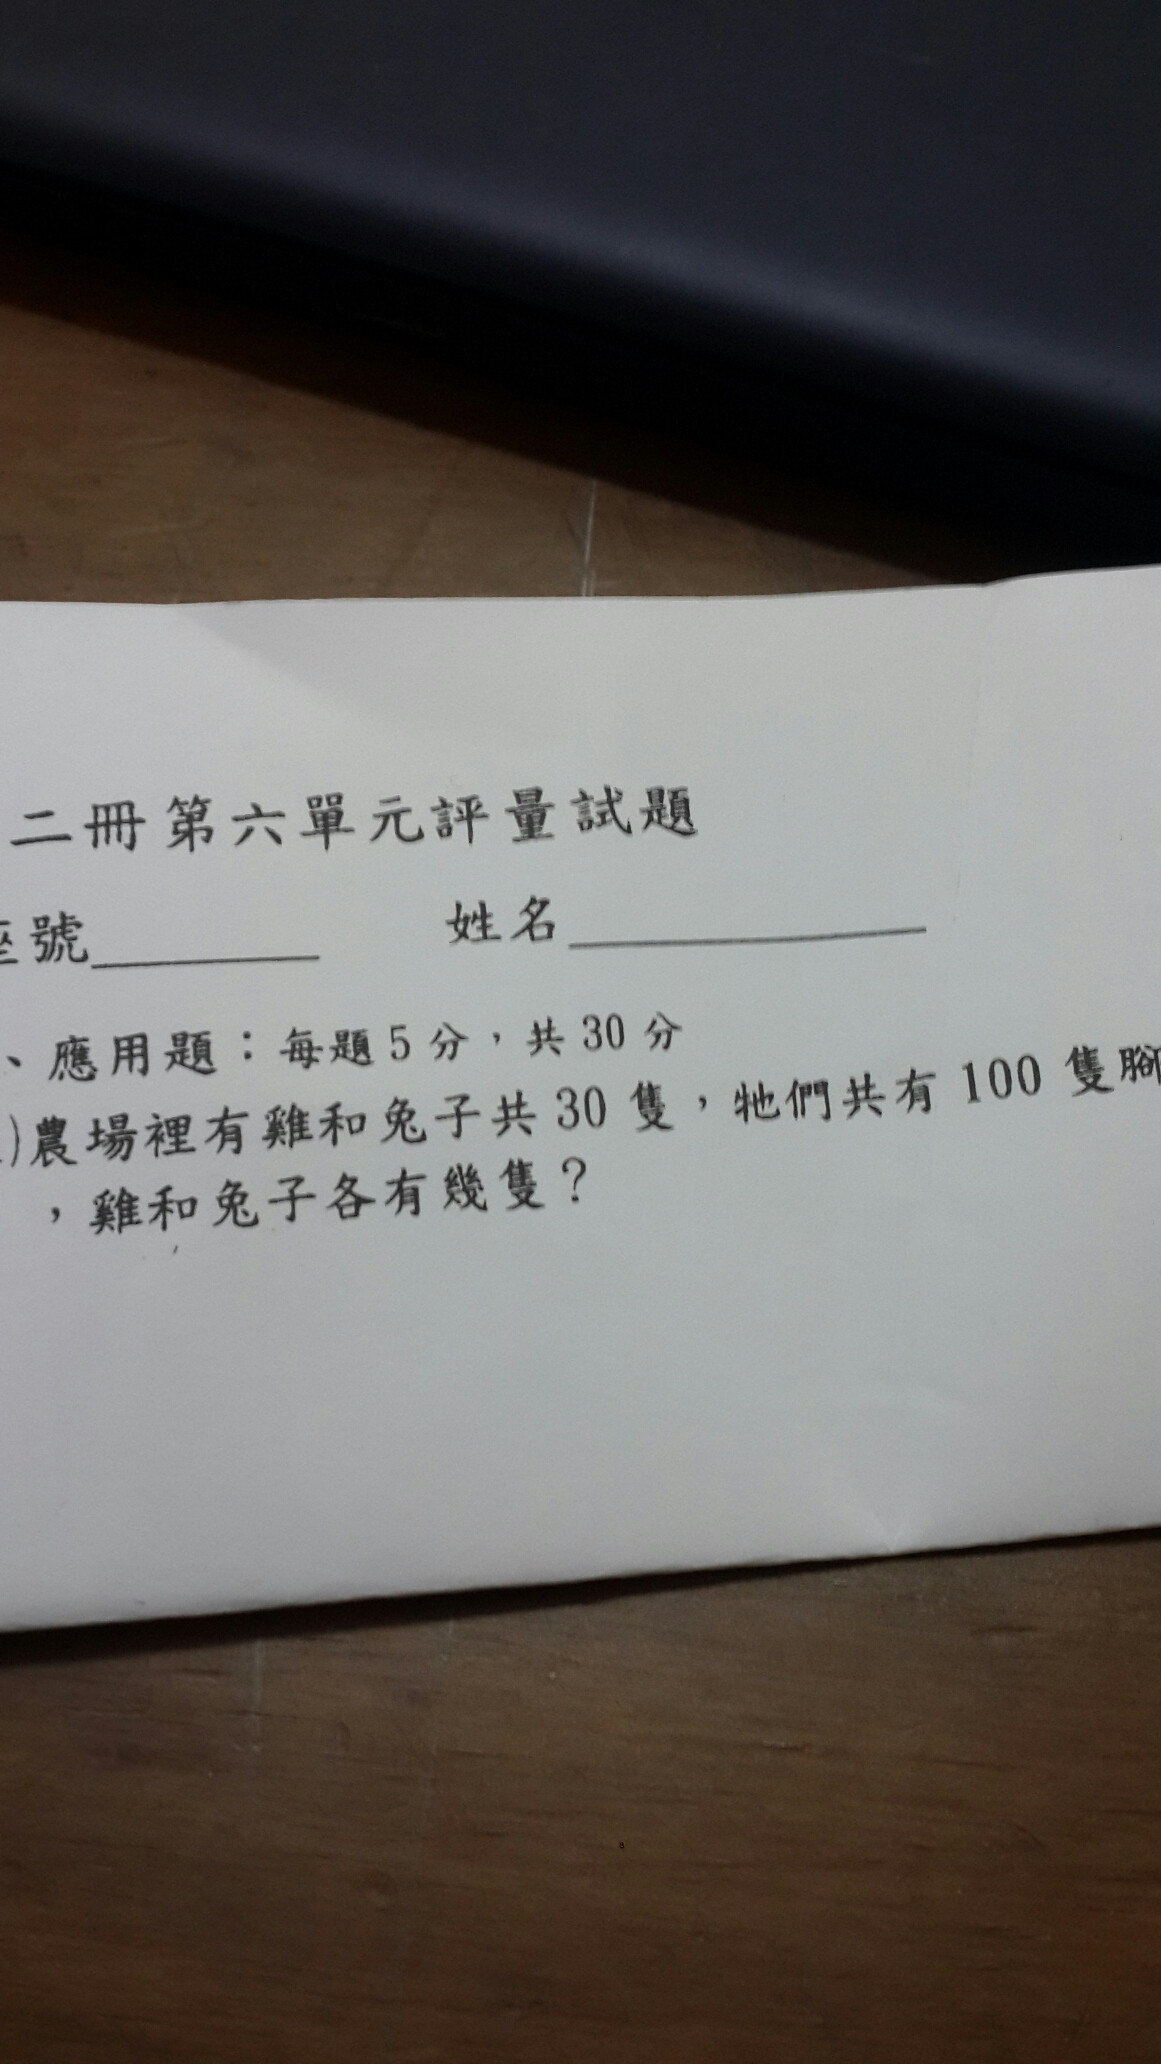 二冊第六單元評量試題
座號 姓名
、應用題：每題5分，共30分
)農場裡有雞和兔子共30隻，牠們共有100隻腳
，雞和兔子各有幾隻？